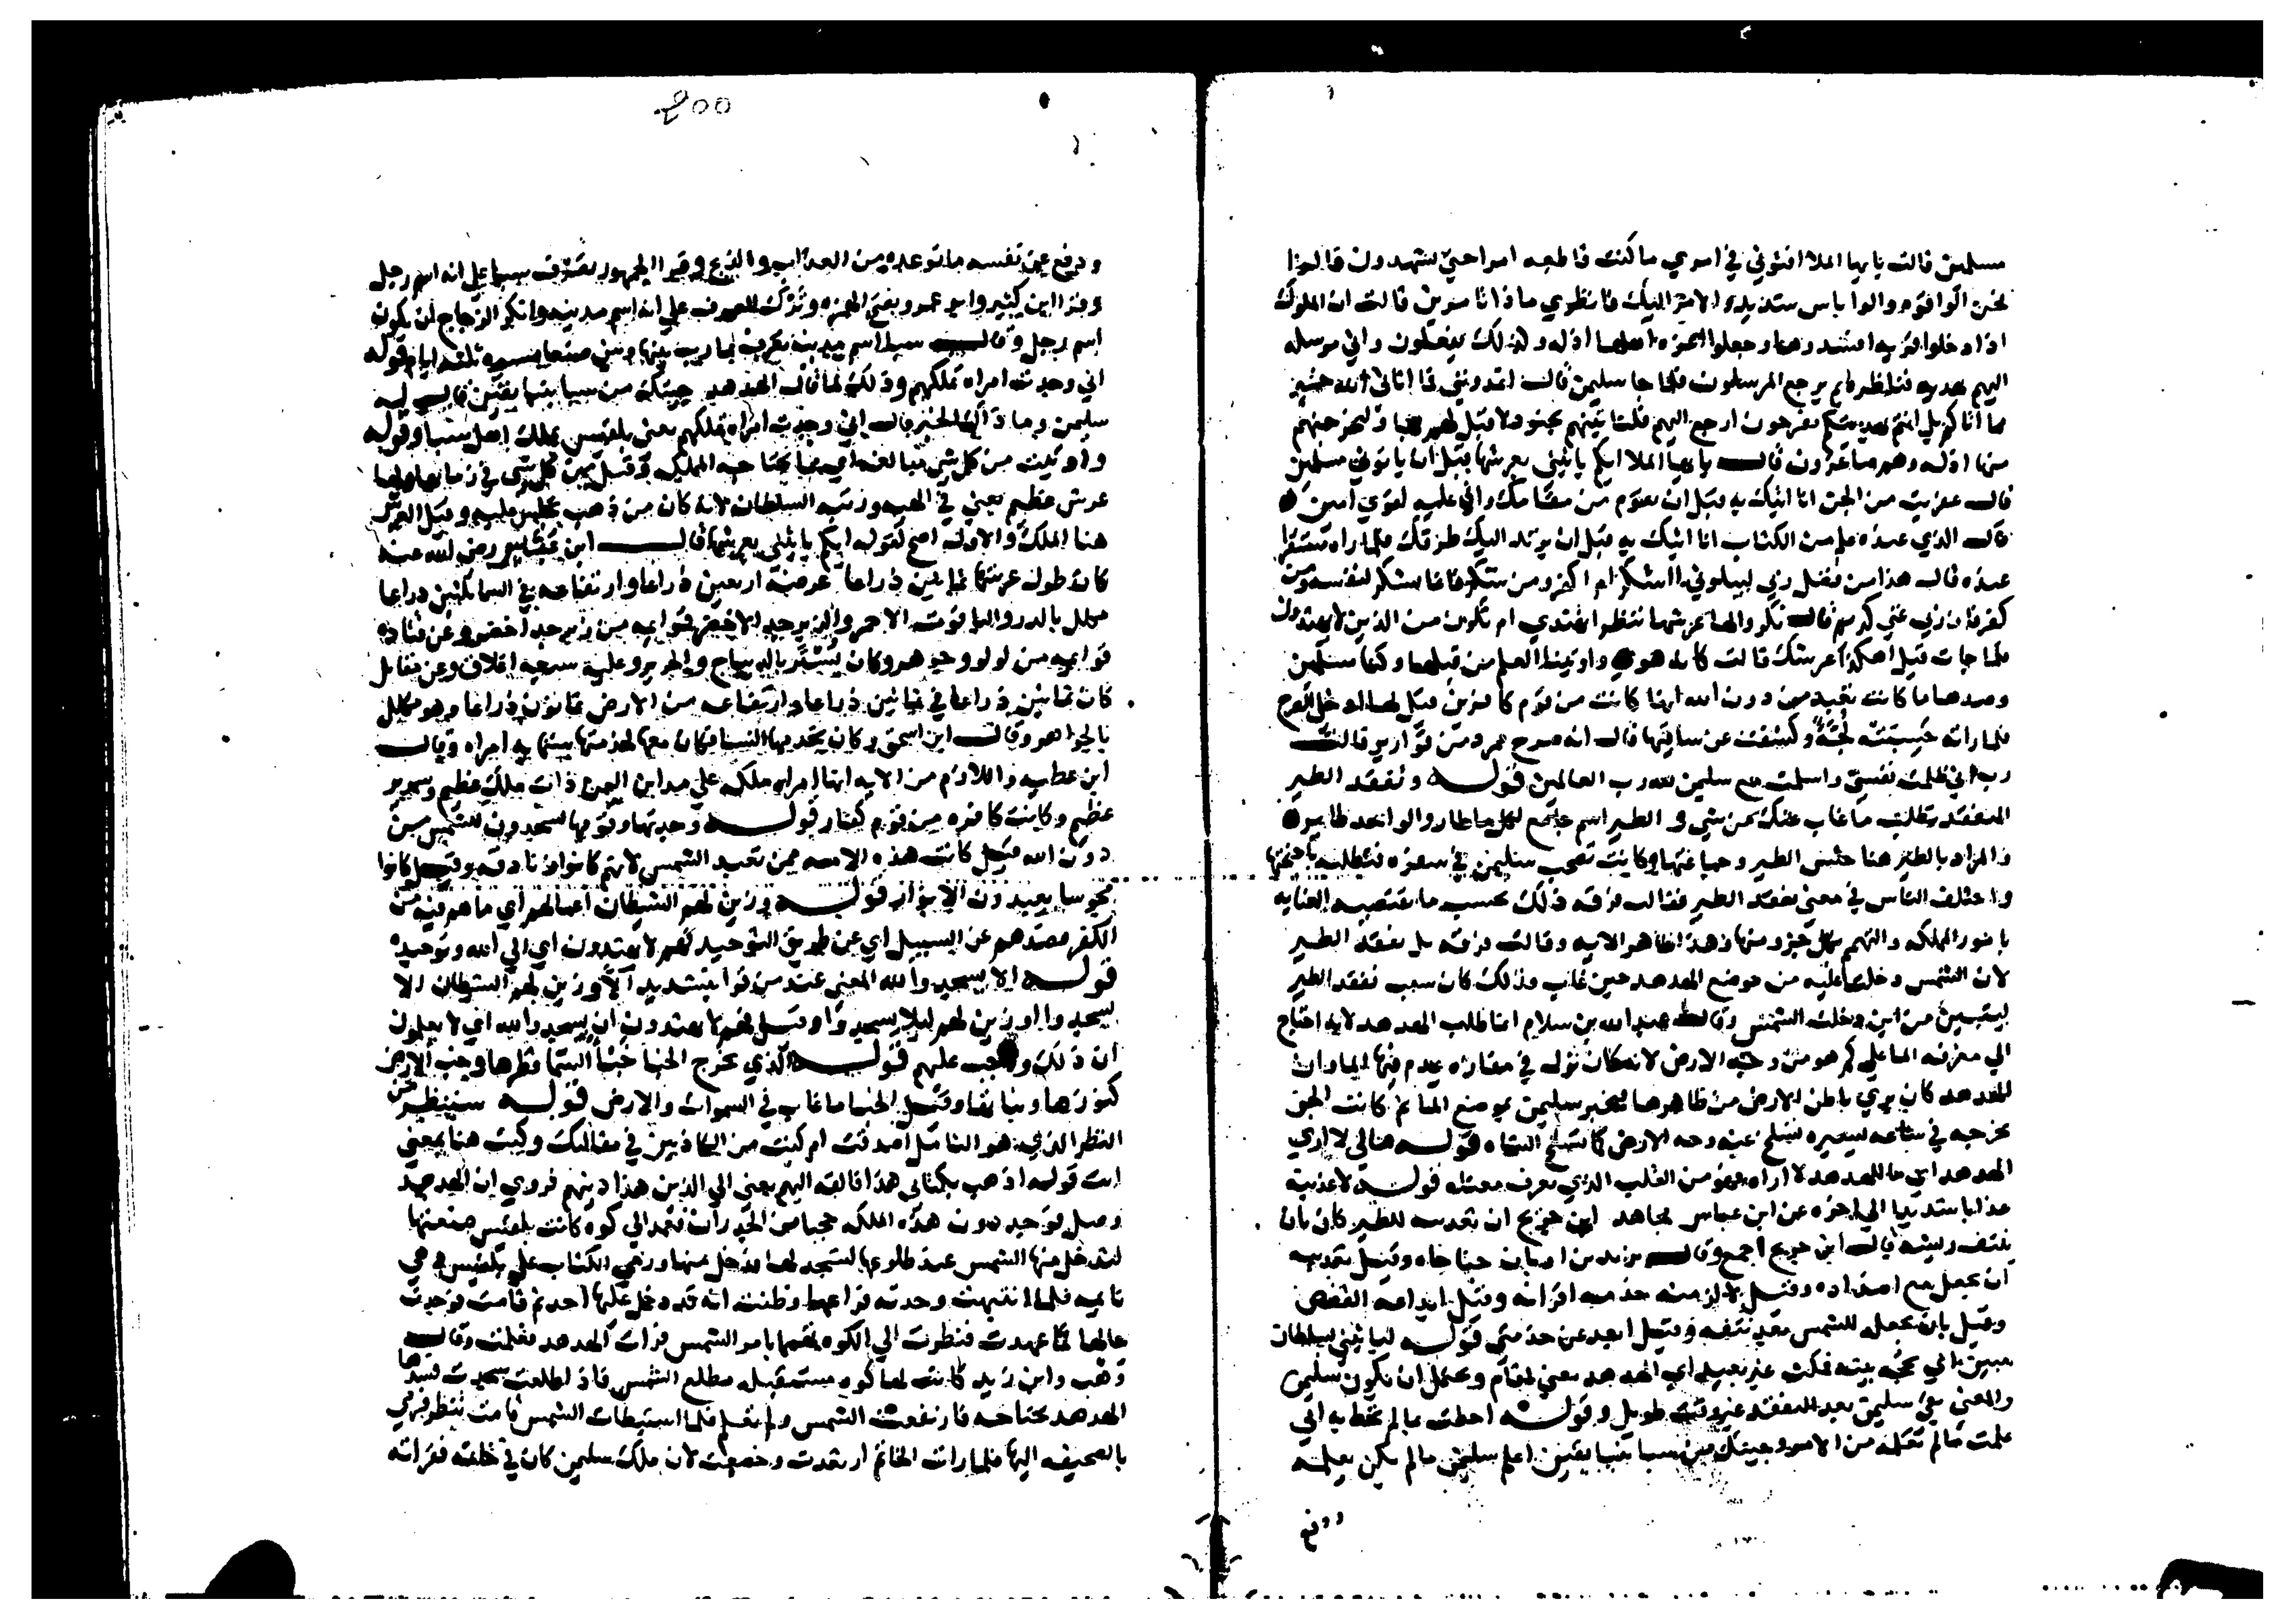 مسلمين قالت يايها الملا افتوني في امري ما كنت قاطعه امرا حتي تشهدون قالوا
نحن الوا قوه والوا باس شديد والامر اليك فانظري ماذا تامرين قالت ان الملوك
اذا دخلوا قريه افسدوها وجعلوا اعزه اهلها اذله وكذلك يفعلون واني مرسله
اليهم بهديه فناظره بم يرجع المرسلون فلما جا سليمن قالت اتمدونني فما اتاني الله خير
مما اتاكم بل انتم بهديتكم تفرحون ارجع اليهم فلناتينهم بجنود لا قبل لهم بها ولنخرجنهم
منها اذله وهم صاغرون قال يايها الملا ايكم ياتيني بعرشها قبل ان ياتوني مسلمين
قال عفريت من الجن انا اتيك به قبل ان تقوم من مقامك واني عليه لقوي امين
قال الذي عنده علم من الكتاب انا اتيك به قبل ان يرتد اليك طرفك فلما راه مستقرا
عنده قال هذا من فضل ربي ليبلوني ااشكر ام اكفر ومن شكر فانما يشكر لنفسه ومن
كفر فان ربي غني كريم قال نكروا لها عرشها ننظر اتهتدي ام تكون من الذين لا يهتدون
فلما جات قيل اهكذا عرشك قالت كانه هو واوتينا العلم من قبلها وكنا مسلمين
وصدها ما كانت تعبد من دون الله انها كانت من قوم كافرين قيل لها ادخلي الصرح
فلما راته حسبته لجة وكشفت عن ساقيها قال انه صرح ممرد من قوارير قالت
رب اني ظلمت نفسي واسلمت مع سليمن لله رب العالمين قوله وتفقد الطير
التفقد تطلب ما غاب عنك من شي و الطير اسم جامع لكل ما طار والواحد طاير
والمراد بالطير هنا جنس الطير وجماعتها وكانت تصحب سليمن في سفره فتظله باجنحتها
واختلف الناس في معني تفقد الطير فقالت فرقه ذلك بحسب ما تقتضيه العنايه
بامور المملكه والتهمم بكل جزو منها وهذا ظاهر الايه وقالت فرقه بل تفقد الطير
لان الشمس دخلت عليه من موضع الهدهد حين غاب وذلك كان سبب تفقد الطير
ليتبين من اين دخلت الشمس وقال عبد الله بن سلام انما طلب الهدهد لانه احتاج
الي معرفه الما علي كم هو من وجه الارض لانه كان نزل في مفازه عدم فيها الما وان
الهدهد كان يري باطن الارض من ظاهرها فيخبر سليمن بموضع الما ثم كانت الجن
تخرجه في ساعه يسيره تسلخ عنه وجه الارض كما تسلخ الشاه قوله مالي لا اري
الهدهد اي ما للهدهد لا اراه وهو من القلب الذي يعرف معناه قوله لاعذبنه
عذابا شديدا الي اخره عن ابن عباس مجاهد ابن جريج ان تعذيبه للطير كان بان
ينتف ريشه قال ابن جريج اجمع وقال يزيد بن رومان جناحاه وقيل تعذيبه
ان يجعل مع اضداده وقيل لالزمنه خدمه اقرانه وقيل ايداعه القفص
وقيل بان يجعله للشمس بعد نتفه وقيل ابعد عن خدمتي قوله لياتيني بسلطان
مبين اي بحجه بينه فمكث غير بعيد اي الهدهد يعني اقام ويحتمل ان يكون سليمن
والمعني بقي سليمن بعد التفقد غير وقت طويل وقوله احطت بما لم تحط به اي
علمت مالم تعلمه من الامر وجيتك من سبا بنبا يقين اعلم سليمن مالم يكن يعلمه
ودفع
٤٥٥
ودفع عن نفسه ما توعده من العذاب والذبح وقرا الجمهور بصرف سبا علي انه اسم رجل
وقرا ابن كثير وابو عمرو بفتح الهمزه وترك الصرف علي انه اسم مدينه وانكر الزجاج ان يكون
اسم رجل وقال سبا اسم مدينه تعرف بمارب بينها وبين صنعا مسيره ثلثه ايام قوله
اني وجدت امراه تملكهم وذلك لما قال الهدهد جيتك من سبا بنبا يقين قال له
سليمن وما ذاك الخبر قال اني وجدت امراه تملكهم يعني بلقيس تملك اهل سبا وقوله
واوتيت من كل شي مبالغه اي مما تحتاجه المملكه وقيل من كل شي في زمانها ولها
عرش عظيم يعني في الهيه ورتبه السلطان لانه كان من ذهب تجلس عليه وقيل العرش
هنا الملك والاول اصح لقوله ايكم ياتيني بعرشها قال ابن عباس رضي الله عنه
كان طول عرشها ثمانين ذراعا عرضه اربعين ذراعا وارتفاعه في السما ثلثين ذراعا
مكلل بالدر والياقوت الاحمر والزبرجد الاخضر قوايمه من زبرجد اخضر وعن قتاده
قوايمه من لولو وجوهر وكان يستر بالديباج والحرير وعليه سبعه اغلاق وعن مقاتل
كان ثمانين ذراعا في ثمانين ذراعا وارتفاعه من الارض ثمانون ذراعا وهو مكلل
بالجواهر وقال ابن اسحق وكان يخدمها النسا فكان معها لخدمتها ستمايه امراه وقال
ابن عطيه واللازم من الايه انها امراه ملكه علي مداين اليمن ذات ملك عظيم وسرير
عظيم وكانت كافره من قوم كفار قوله وجدتها وقومها يسجدون للشمس من
دون الله قيل كانت هذه الامه ممن تعبد الشمس لانهم كانوا زنادقه وقيل كانوا
مجوسا يعبدون الانوار قوله وزين لهم الشيطان اعمالهم اي ما هم فيه من
الكفر فصدهم عن السبيل اي عن طريق التوحيد فهم لا يهتدون اي الي الله وتوحيده
قوله الا يسجدوا لله المعني عند من قرا بتشديد الا وزين لهم الشيطان الا
يسجدوا او زين لهم ليلا يسجدوا وقيل فهم لا يهتدون ان يسجدوا لله اي لا يعلمون
ان ذلك واجب عليهم قوله الذي يخرج الخبا خبا السما قطرها وخبا الارض
كنوزها ونباتها وقيل الخبا ما غاب في السموات والارض قوله سننظر من
النظر الذي هو التامل اصدقت ام كنت من الكاذبين في مقالتك وكنت هنا بمعني
انت قوله اذهب بكتابي هذا فالقه اليهم يعني الي الذين هذا دينهم فروي ان الهدهد
وصل فوجد دون هذه الملكه حجب من الجدران فعمد الي كوه كانت بلقيس صنعتها
لتدخل منها الشمس عند طلوعها لتسجد لها فدخل منها ورمي الكتاب علي بلقيس وهي
نايمه فلما انتبهت وجدته فراعها وظنت انه قد دخل عليها احد ثم قامت فوجدت
حالها كما عهدت فنظرت الي الكوه تهمما بامر الشمس فرات الهدهد فعلمت وقال
وهب وابن زيد كانت لها كوه مستقبله مطلع الشمس فاذا طلعت سجدت فسدها
الهدهد بجناحه فارتفعت الشمس ولم تعلم فلما استبطات الشمس قامت تنظر فرمي
بالصحيفه اليها فلما رات الخاتم ارتعدت وخضعت لان ملك سليمن كان في خاتمه فقراته